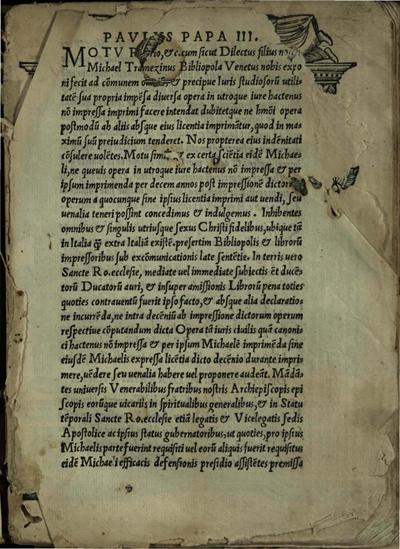 PAVLVS PAPA III.
MOTV & c. cum sicut Dilectus filius
Michael Tramezinus Bibliopola Venetus nobis expo
ni fecit ad cōmunem & precipue Iuris studiosorū utili
tatē sua propria impēsa diuersa opera in utroque iure hactenus
nō impressa imprimi facere intendat dubitetque ne hmōi opera
postmodū ab aliis absque eius licentia imprimātur, quod in ma
ximū suū preiudicium tenderet. Nos propterea eius indēnitati
cōsulere uolētes. Motu & ex certa sciētia eidē Michae
li, ne queuis opera in utroque iure hactenus nō impressa & per
ipsum imprimenda per decem annos post impressionē
operum a quocunque sine ipsius licentia imprimi aut uendi, seu
uenalia teneri possint concedimus & indulgemus. Inhibentes
omnibus & singulis utriusque sexus Christi fidelibus, ubique tā
in Italia ꝗ̄ extra Italiā existē. presertim Bibliopolis & librorū
impressoribus sub excōmunicationis late sentētie. In terris uero
Sancte Ro. ecclesie, mediate uel immediate subiectis ēt ducē
torū Ducatorū auri, & insuper amissionis Librorū pena toties
quoties contrauentū fuerit ipso facto, & absque alia declaratio
ne incurrēda, ne intra decēniū ab impressione dictorum operum
respectiue cōputandum dicta Opera tā iuris ciuilis quā canoni
ci hactenus nō impressa & per ipsum Michaelē imprimēda sine
eiusdē Michaelis expressa licētia dicto decēnio durante impri
mere, uēdere seu uenalia habere uel proponere audeāt. Mādā
tes uniuersis Venerabilibus fratribus nostris Archiepiscopis epi
scopis eorūque uicariis in spiritualibus generalibus, & in Statu
tēporali Sancte Ro. ecclesie etiā legatis & Vicelegatis sedis
Apostolice ac ipsius status gubernatoribus, ut quoties, pro ipsius
Michaelis parte fuerint requisiti uel eorū aliquis fuerit requisitus
eidē Michaeli efficacis defensionis presidio assistētes premissa